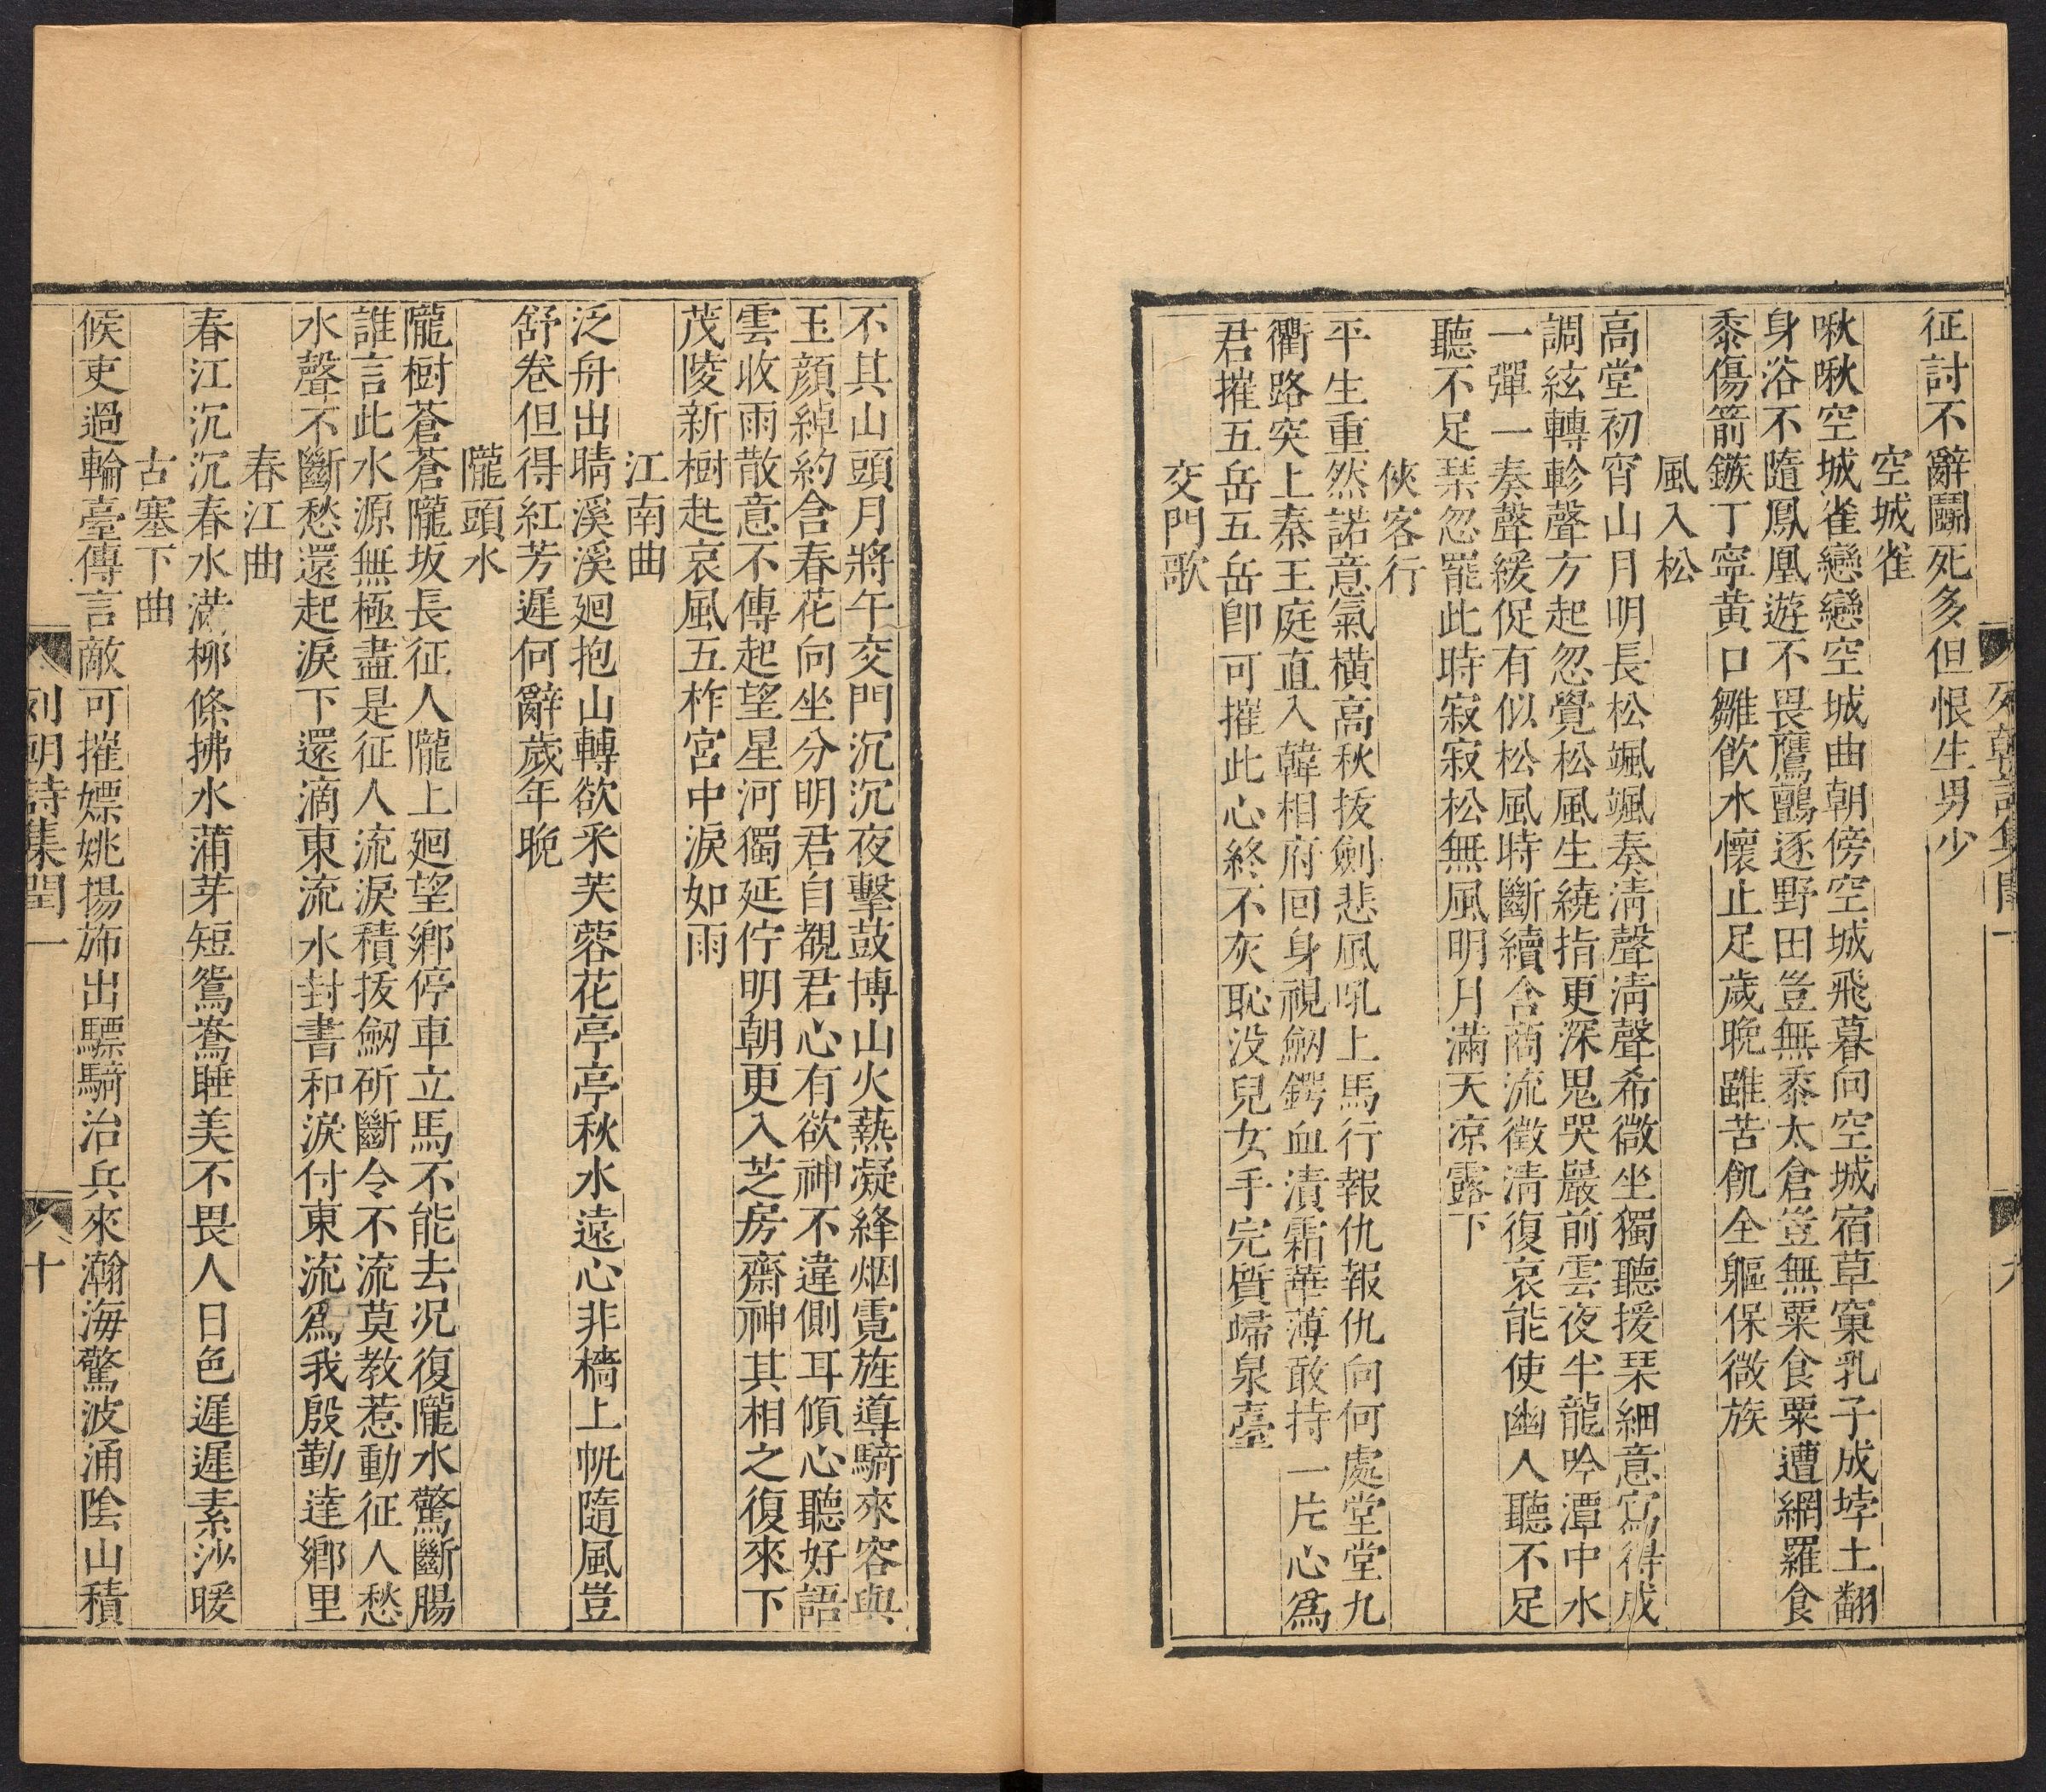 征討不辭鬭死多但恨生男少
空城雀
啾啾空城雀戀戀空城曲朝傍空城飛暮向空城宿草窠乳子成垺土翻
身浴不隨鳳凰遊不畏鷹鸇逐野田豈無黍太倉豈無粟食粟遭網羅食
黍傷箭鏃丁寧黄口雛飲水懷止足歲晚雖苦飢全軀保微族
風入松
高堂初宵山月明長松颯颯奏清聲清聲希微坐獨聽援琹細意寫得成
調絃轉軫聲方起忽覺松風生繞指更深鬼哭嚴前雲夜半龍吟潭中水
一彈一奏聲緩促有似松風時斷續含商流徵清復哀能使幽人聽不足
聽不足琹忽罷此時寂寂松無風明月滿天凉露下
俠客行
平生重然諾意氣橫高秋拔劍悲風吼上馬行報仇報仇向何處堂堂九
衢路突上秦王庭直入韓相府回身視劒鍔血漬霜華薄敢持一片心爲
君摧五岳五岳卽可摧此心終不灰恥没兒女手完質歸泉臺
交門歌
列朝詩集閏一
九
不其山頭月將午交門沉沉夜擊鼓博山火熱凝絳烟霓旌導騎來容與
玉顔綽約含春花向坐分明君自覩君心有欲神不違側耳傾心聽好語
雲收雨散意不傳起望星河獨延佇明朝更入芝房齋神其相之復來下
茂陵新樹起哀風五柞宮中淚如雨
江南曲
泛舟出晴溪溪廻抱山轉欲采芙蓉花亭亭秋水遠心非檣上帆隨風豈
舒卷但得紅芳遲何辭歲年晚
隴頭水
隴樹蒼蒼隴坂長征人隴上廻望鄉停車立馬不能去况復隴水驚斷腸
誰言此水源無極盡是征人流淚積拔劒斫斷令不流莫教惹動征人愁
水聲不斷愁還起淚下還滴東流水封書和淚付東流爲我殷勤達鄉里
春江曲
春江沉沉春水滿柳條拂水蒲芽短鴛鴦睡美不畏人日色遲遲素沙暖
古塞下曲
候吏過輪臺傳言敵可摧嫖姚揚斾出驃騎治兵來瀚海驚波涌陰山積
列朝詩集閏一
十